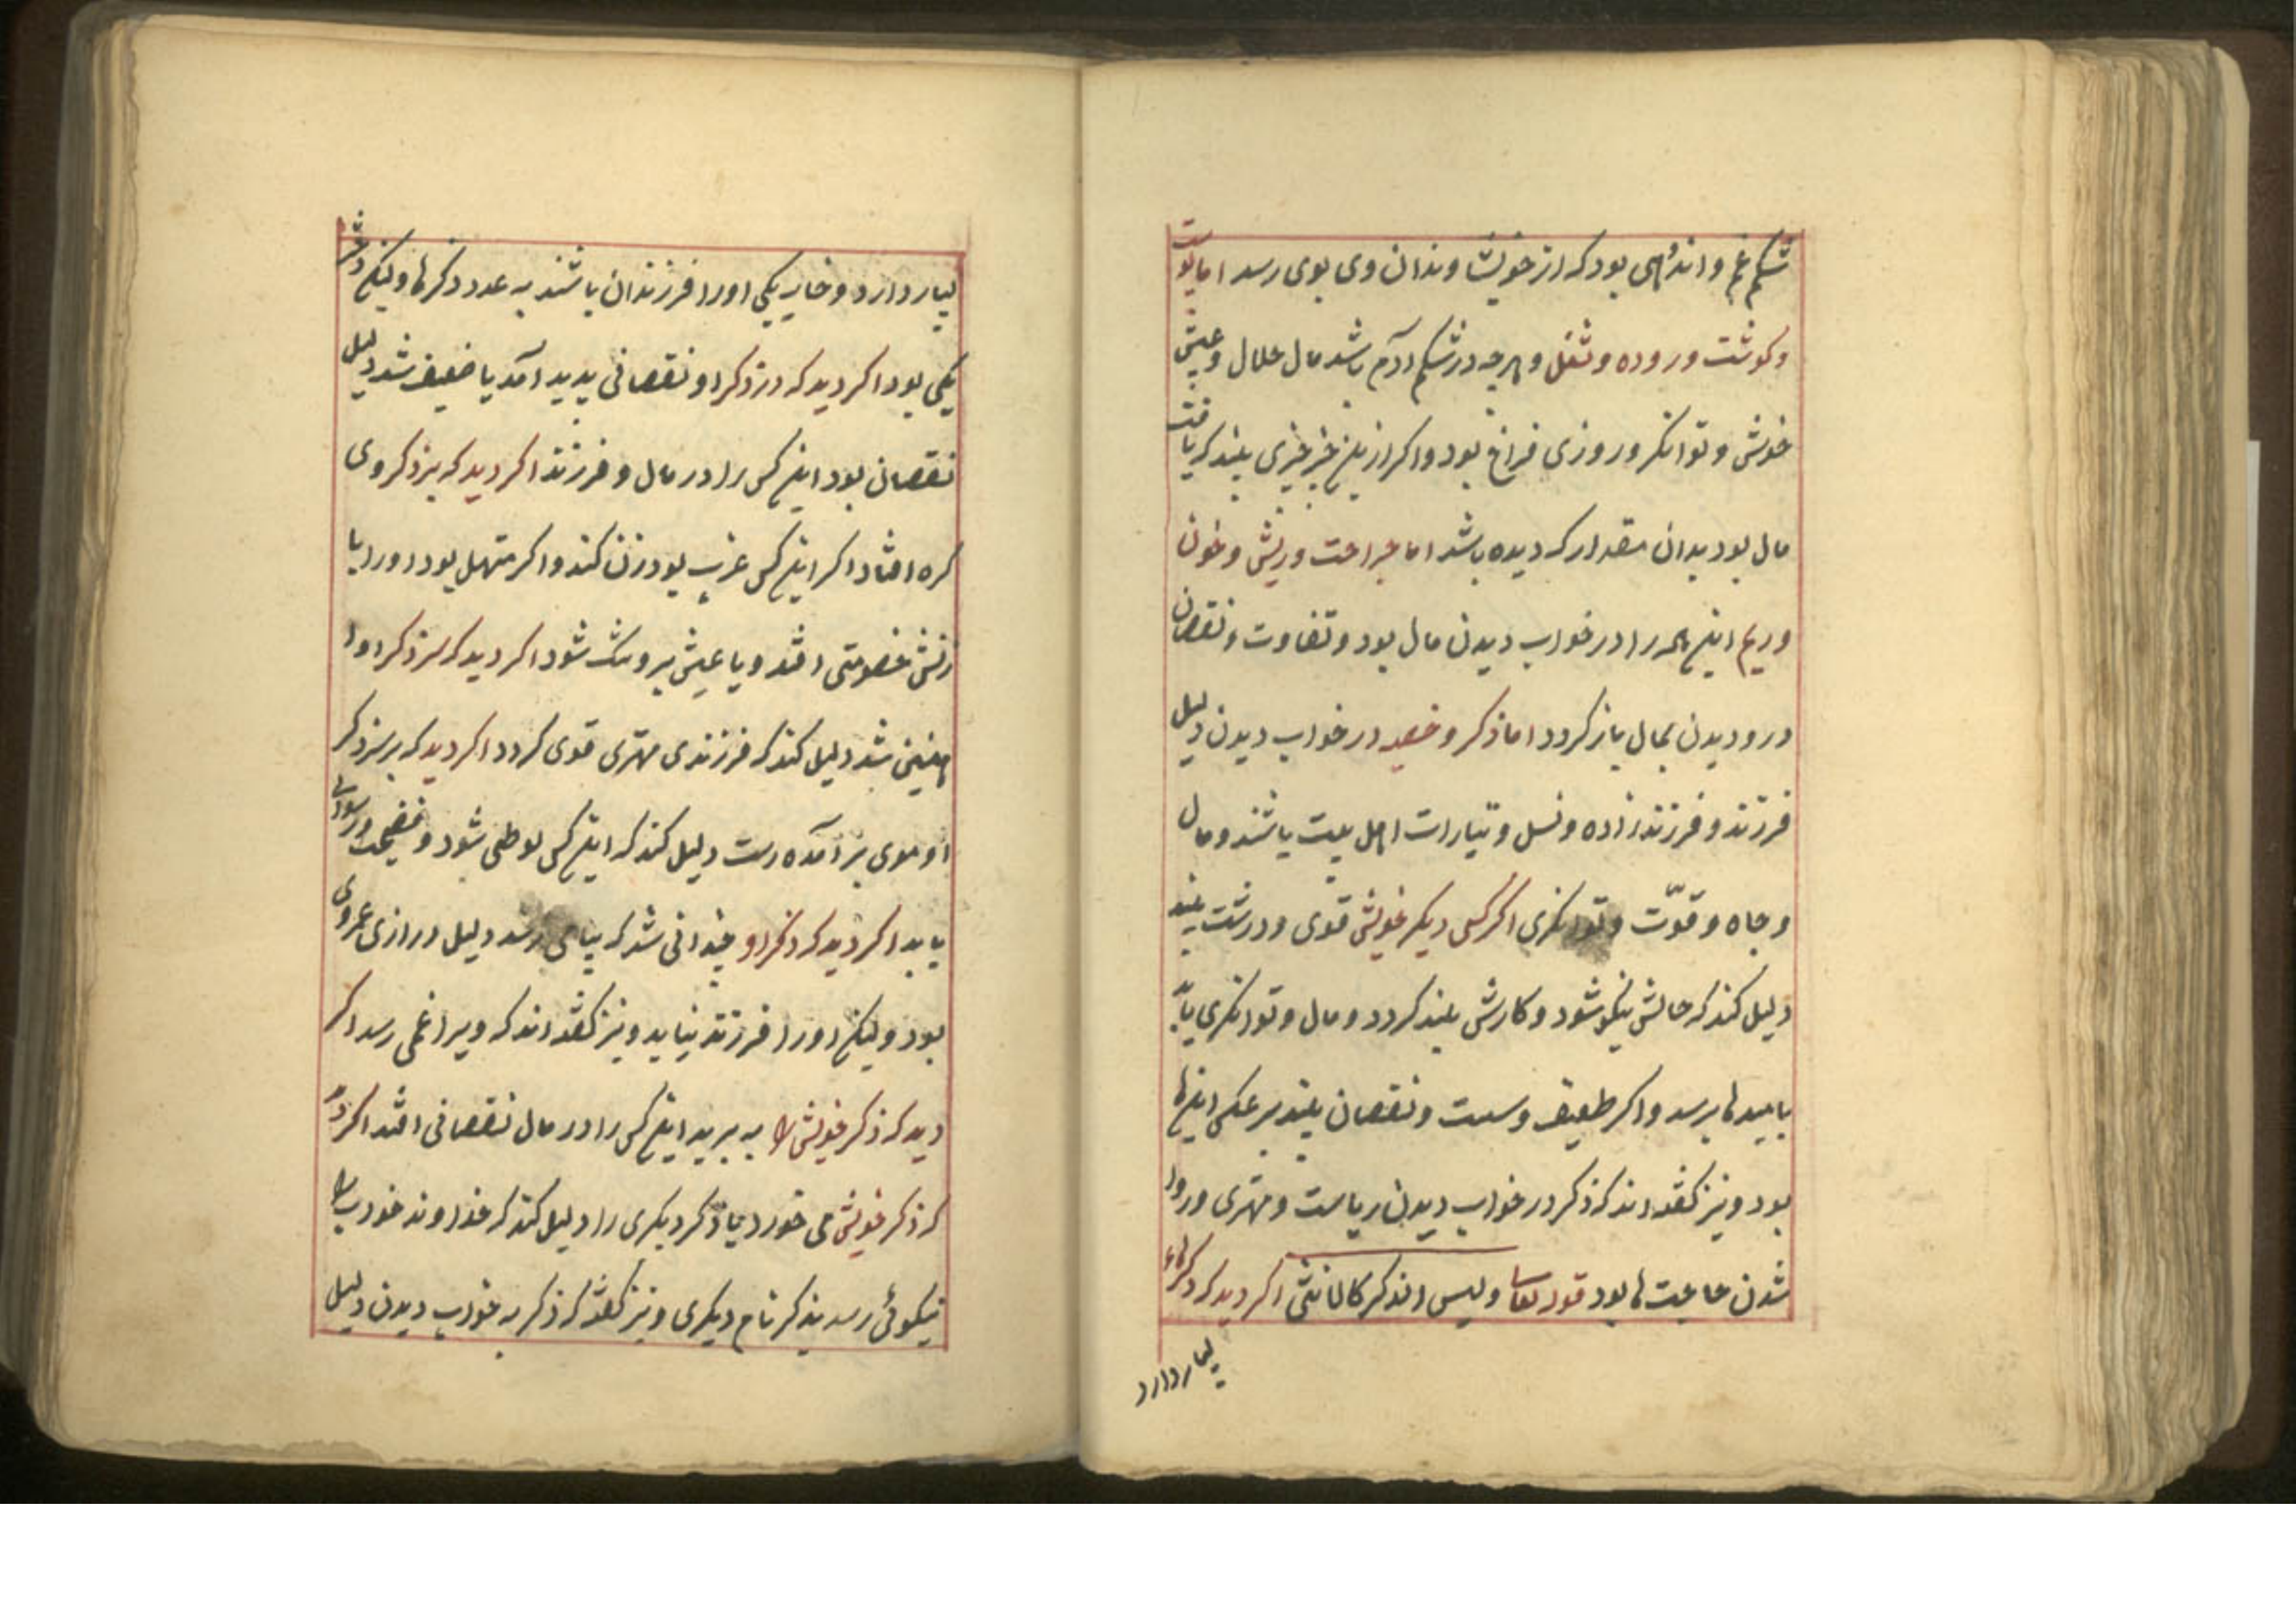 شکم غم و اندوهی بود که از خویشاوندان وی بوی رسد اما پوست
و کوشت و روده و ثفل و هرچه در شکم آدم باشد مال حلال و عیش
خوش و توانکر و روزی فراخ بود و اکر ازین چیزی بیند که یافت
مال بود بدان مقدار که دیده باشد اما جراحت و ریش و خون
و ریم این همه را در خواب دیدن مال بود و تفاوت و نقصان
درو دیدن بمال باز کردد اما ذکر و خصیه در خواب دیدن دلیل
فرزند و فرزندزاده و نسل و تبارات اهل بیت باشند و مال
و جاه و قوّت و توانکری اکر کسی دیکر خویش قوی و درشت بیند
دلیل کند که حالش نیکو شود و کارش بلند کردد و مال و توانکری یابد
بامیدها برسد و اکر ظعیف و سست و نقصان بیند بر عکس اینها
بود و نیز کفته اند که ذکر در خواب دیدن ریاست و مهتری و روا
شدن حاجت ها بود قوله تعا ولیس الذکر کالانثی اکر دید که ذکرهاء
بسیار دارد
بسیار دارد و خایه یکی اورا فرزندان باشند به عدد ذکرها ولیکن دختر
یکی بود اکر دید که در ذکر او نقصانی پدید آمد یا ضعیف شد دلیل
نقصان بود این کس را در مال و فرزند اکر دید که بر ذکر وی
کره افتاد اکر این کس عزب بود زن کند و اکر متهل بود اورا با
زنش خصومتی افتد و یا عیش برو تنک شود اکر دید که سر ذکر اورا
همچنین شد دلیل کند که فرزندی مهتری قوی کردد اکر دید که بر سر ذکر
او موی برآمده است دلیل کند که این کس لوطی شود و فضیحت و رسوائی
یابد اکر دید که ذکر او چندانی شد که بپای رسد دلیل درازی عمر وی
بود ولیکن اورا فرزند نیاید و نیز کفته اند که ویرا غمی رسد اکر
دید که ذکر خویش را به برید این کس را در مال نقصانی افتد اکر دید
که ذکر خویش می خورد یا ذکر دیکری را دلیل کند که خداوند خود را
نیکوئی رسد بذکر نام دیکری و نیز کفته که ذکر به خواب دیدن دلیل